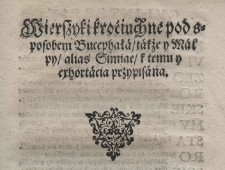 Wierszyki krociuchne pod s-
posobem Bucephałá/ tákże y Mał
py/ alias Simiae/ k temu y
exhortácia przypisána.